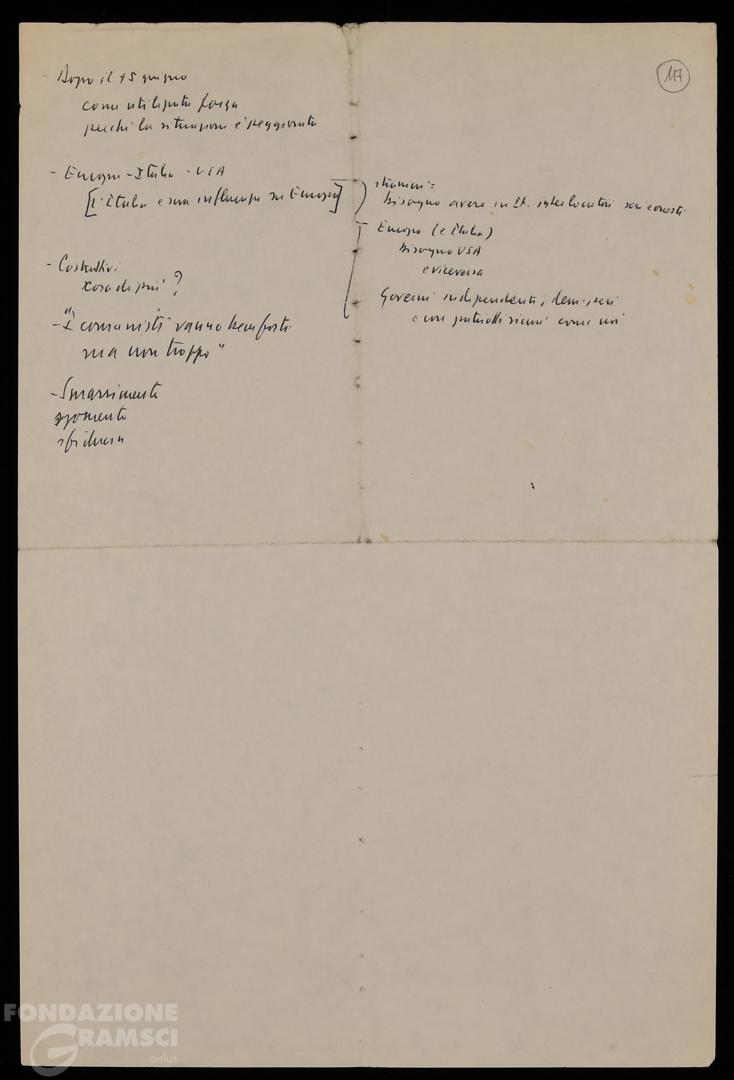 117
- Dopo il 15 giugno
come utilizzata forza
perché la situazione è peggiorata
- Europa - Italia - USA
[L'Italia e sua influenza su Europa]
- Costruttivi
cosa di più?
- "I comunisti vanno bene forti
ma non troppo"
- Smarrimento
sgomento
sfiducia
stranieri =
bisogno avere in It. interlocutori seri e onesti
Europa (e Italia)
bisogno USA
e viceversa
Governi indipendenti, dem., seri
e con patriotti sicuri come noi
FONDAZIONE
GRAMSCI
onlus